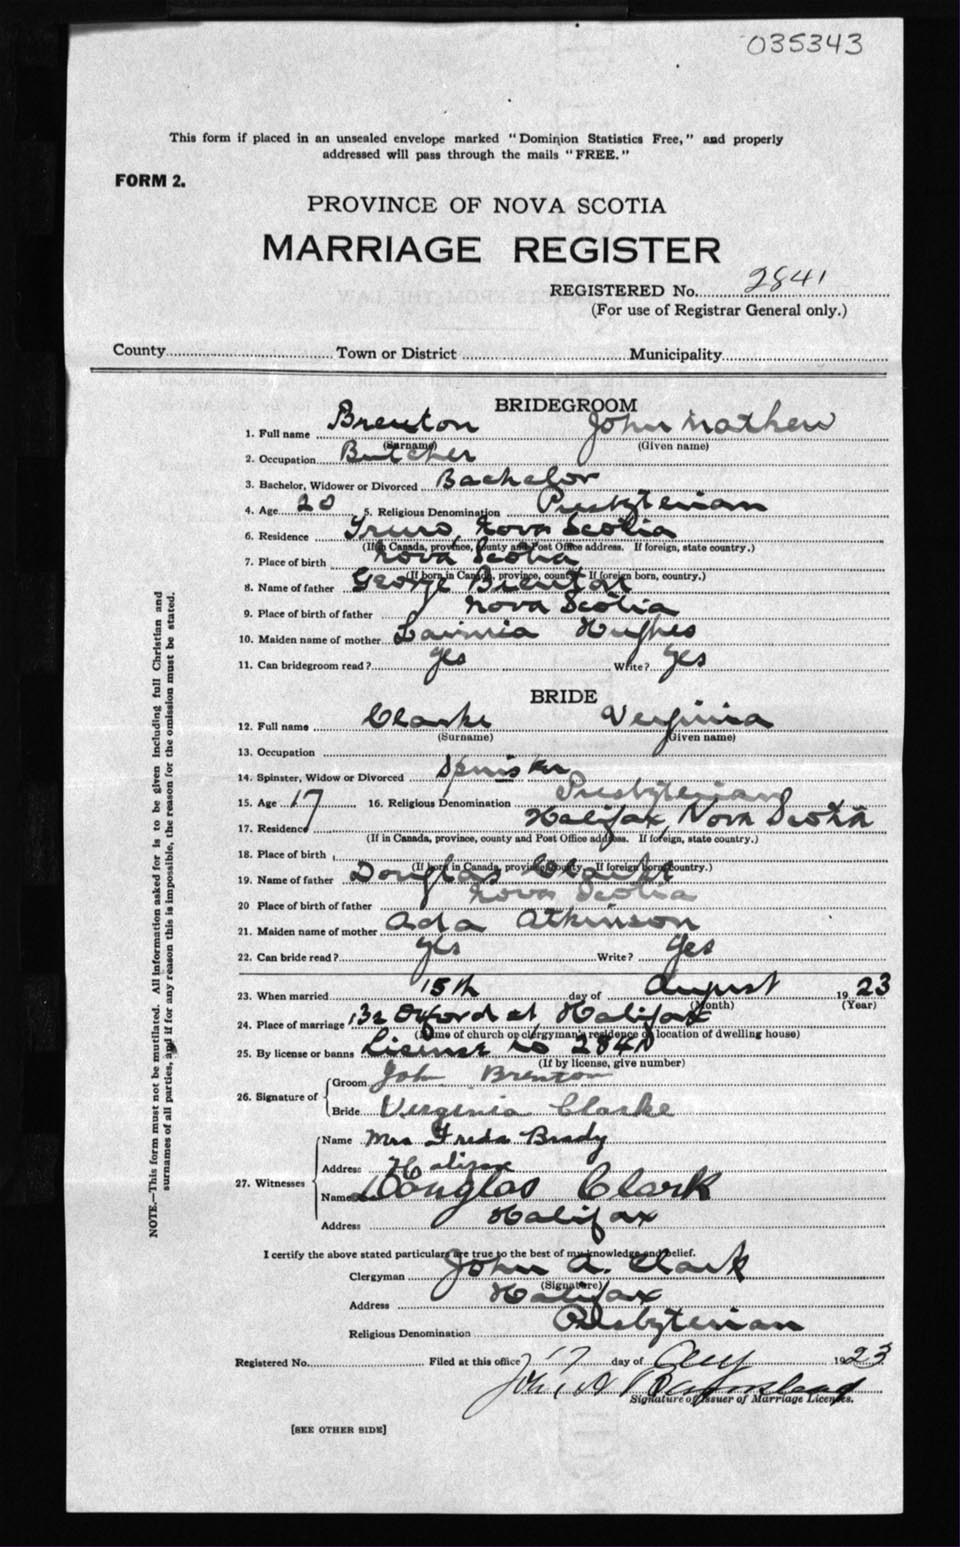 035343
This form if placed in an unsealed envelope marked "Dominion Statistics Free," and properly
addressed will pass through the mails "FREE."
FORM 2.
PROVINCE OF NOVA SCOTIA
MARRIAGE REGISTER
REGISTERED No. 2841
(For use of Registrar General only.)
County Town or District Municipality
BRIDEGROOM
1. Full name Brenton John Mathew
(Surname) (Given name)
2. Occupation Butcher
3. Bachelor, Widower or Divorced Bachelor
4. Age 20 5. Religious Denomination Presbyterian
6. Residence Truro, Nova Scotia
(If in Canada, province, county and Post Office address. If foreign, state country.)
7. Place of birth Nova Scotia
(If born in Canada, province, county. If foreign born, country.)
8. Name of father George Brenton
9. Place of birth of father Nova Scotia
10. Maiden name of mother Hughes
11. Can bridegroom read? yes Write? yes
BRIDE
12. Full name Clarke Verginia
(Surname) (Given name)
13. Occupation
14. Spinster, Widow or Divorced Spinster
15. Age 17 16. Religious Denomination Presbyterian
17. Residence Halifax, Nova Scotia
(If in Canada, province, county and Post Office address. If foreign, state country.)
18. Place of birth
(If born in Canada, province, county. If foreign born, country.)
19. Name of father Douglas Clarke
20 Place of birth of father Nova Scotia
21. Maiden name of mother Ada Atkinson
22. Can bride read? yes Write? yes
23. When married 15th day of August 1923
(Month) (Year)
24. Place of marriage 132 Oxford st Halifax
(Name of church or clergyman's residence or location of dwelling house)
25. By license or banns License no 2841
(If by license, give number)
26. Signature of
Groom John Brenton
Bride Verginia Clarke
27. Witnesses
Name Mrs Freda Brady
Address Halifax
Name Douglas Clark
Address Halifax
I certify the above stated particulars are true to the best of my knowledge and belief.
Clergyman John A. Clark
(Signature)
Address Halifax
Religious Denomination Presbyterian
Registered No. Filed at this office 17 day of Aug 1923
Signature of Issuer of Marriage Licenses.
[SEE OTHER SIDE]
NOTE.—This form must not be mutilated. All information asked for is to be given including full Christian and
surnames of all parties, and if for any reason this is impossible, the reason for the omission must be stated.